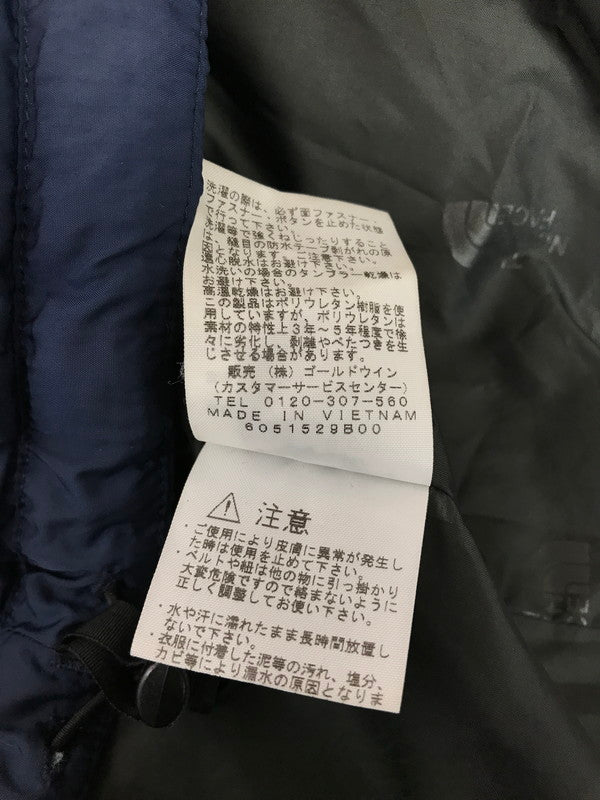 洗濯の際は、必ず面ファスナー、
ファスナー、ボタンを止めた状態
で行って下さい。
洗濯等で強くねじったりすること
は、縫目の防水テープ剥がれの原
因となります。ご注意下さい。
遠心脱水はお避け下さい。
水洗いの場合のタンブラー乾燥は
お避け下さい。
高温乾燥はお避け下さい。
この製品はポリウレタン樹脂を使
用していますが、ポリウレタンは
素材の特性上3年～5年程度で徐
々に劣化し、剥離やべたつきを生
じさせる場合があります。
販売 (株) ゴールドウイン
(カスタマーサービスセンター)
TEL 0120-307-560
MADE IN VIETNAM
6051529B00
注意
・ご使用により皮膚に異常が発生し
た時は使用を止めて下さい。
・ベルトや紐は他の物に引っ掛かり
大変危険ですので絡まないように
正しく調整してお使い下さい。
・水や汗に濡れたまま長時間放置し
ないで下さい。
・衣服に付着した泥等の汚れ、塩分、
カビ等により漏水の原因となりま